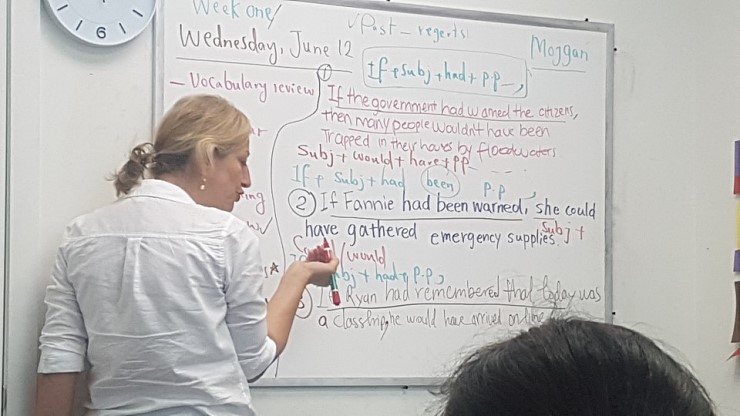 6
Week one/
✓ Past _ regerts!
Mojgan
Wednesday, June 12
If + Subj + had + p.p __,
– Vocabulary review
① If the government had warned the citizens,
then many people wouldn't have been
Trapped in their homes by floodwaters
Subj + would + have + PP
If + Subj + had been P.P,
② If Fannie had been warned, she could
have gathered emergency supplies.
Subj +
/would
+ had + P.P,
Ryan had remembered that today was
a class trip, he would have arrived on time